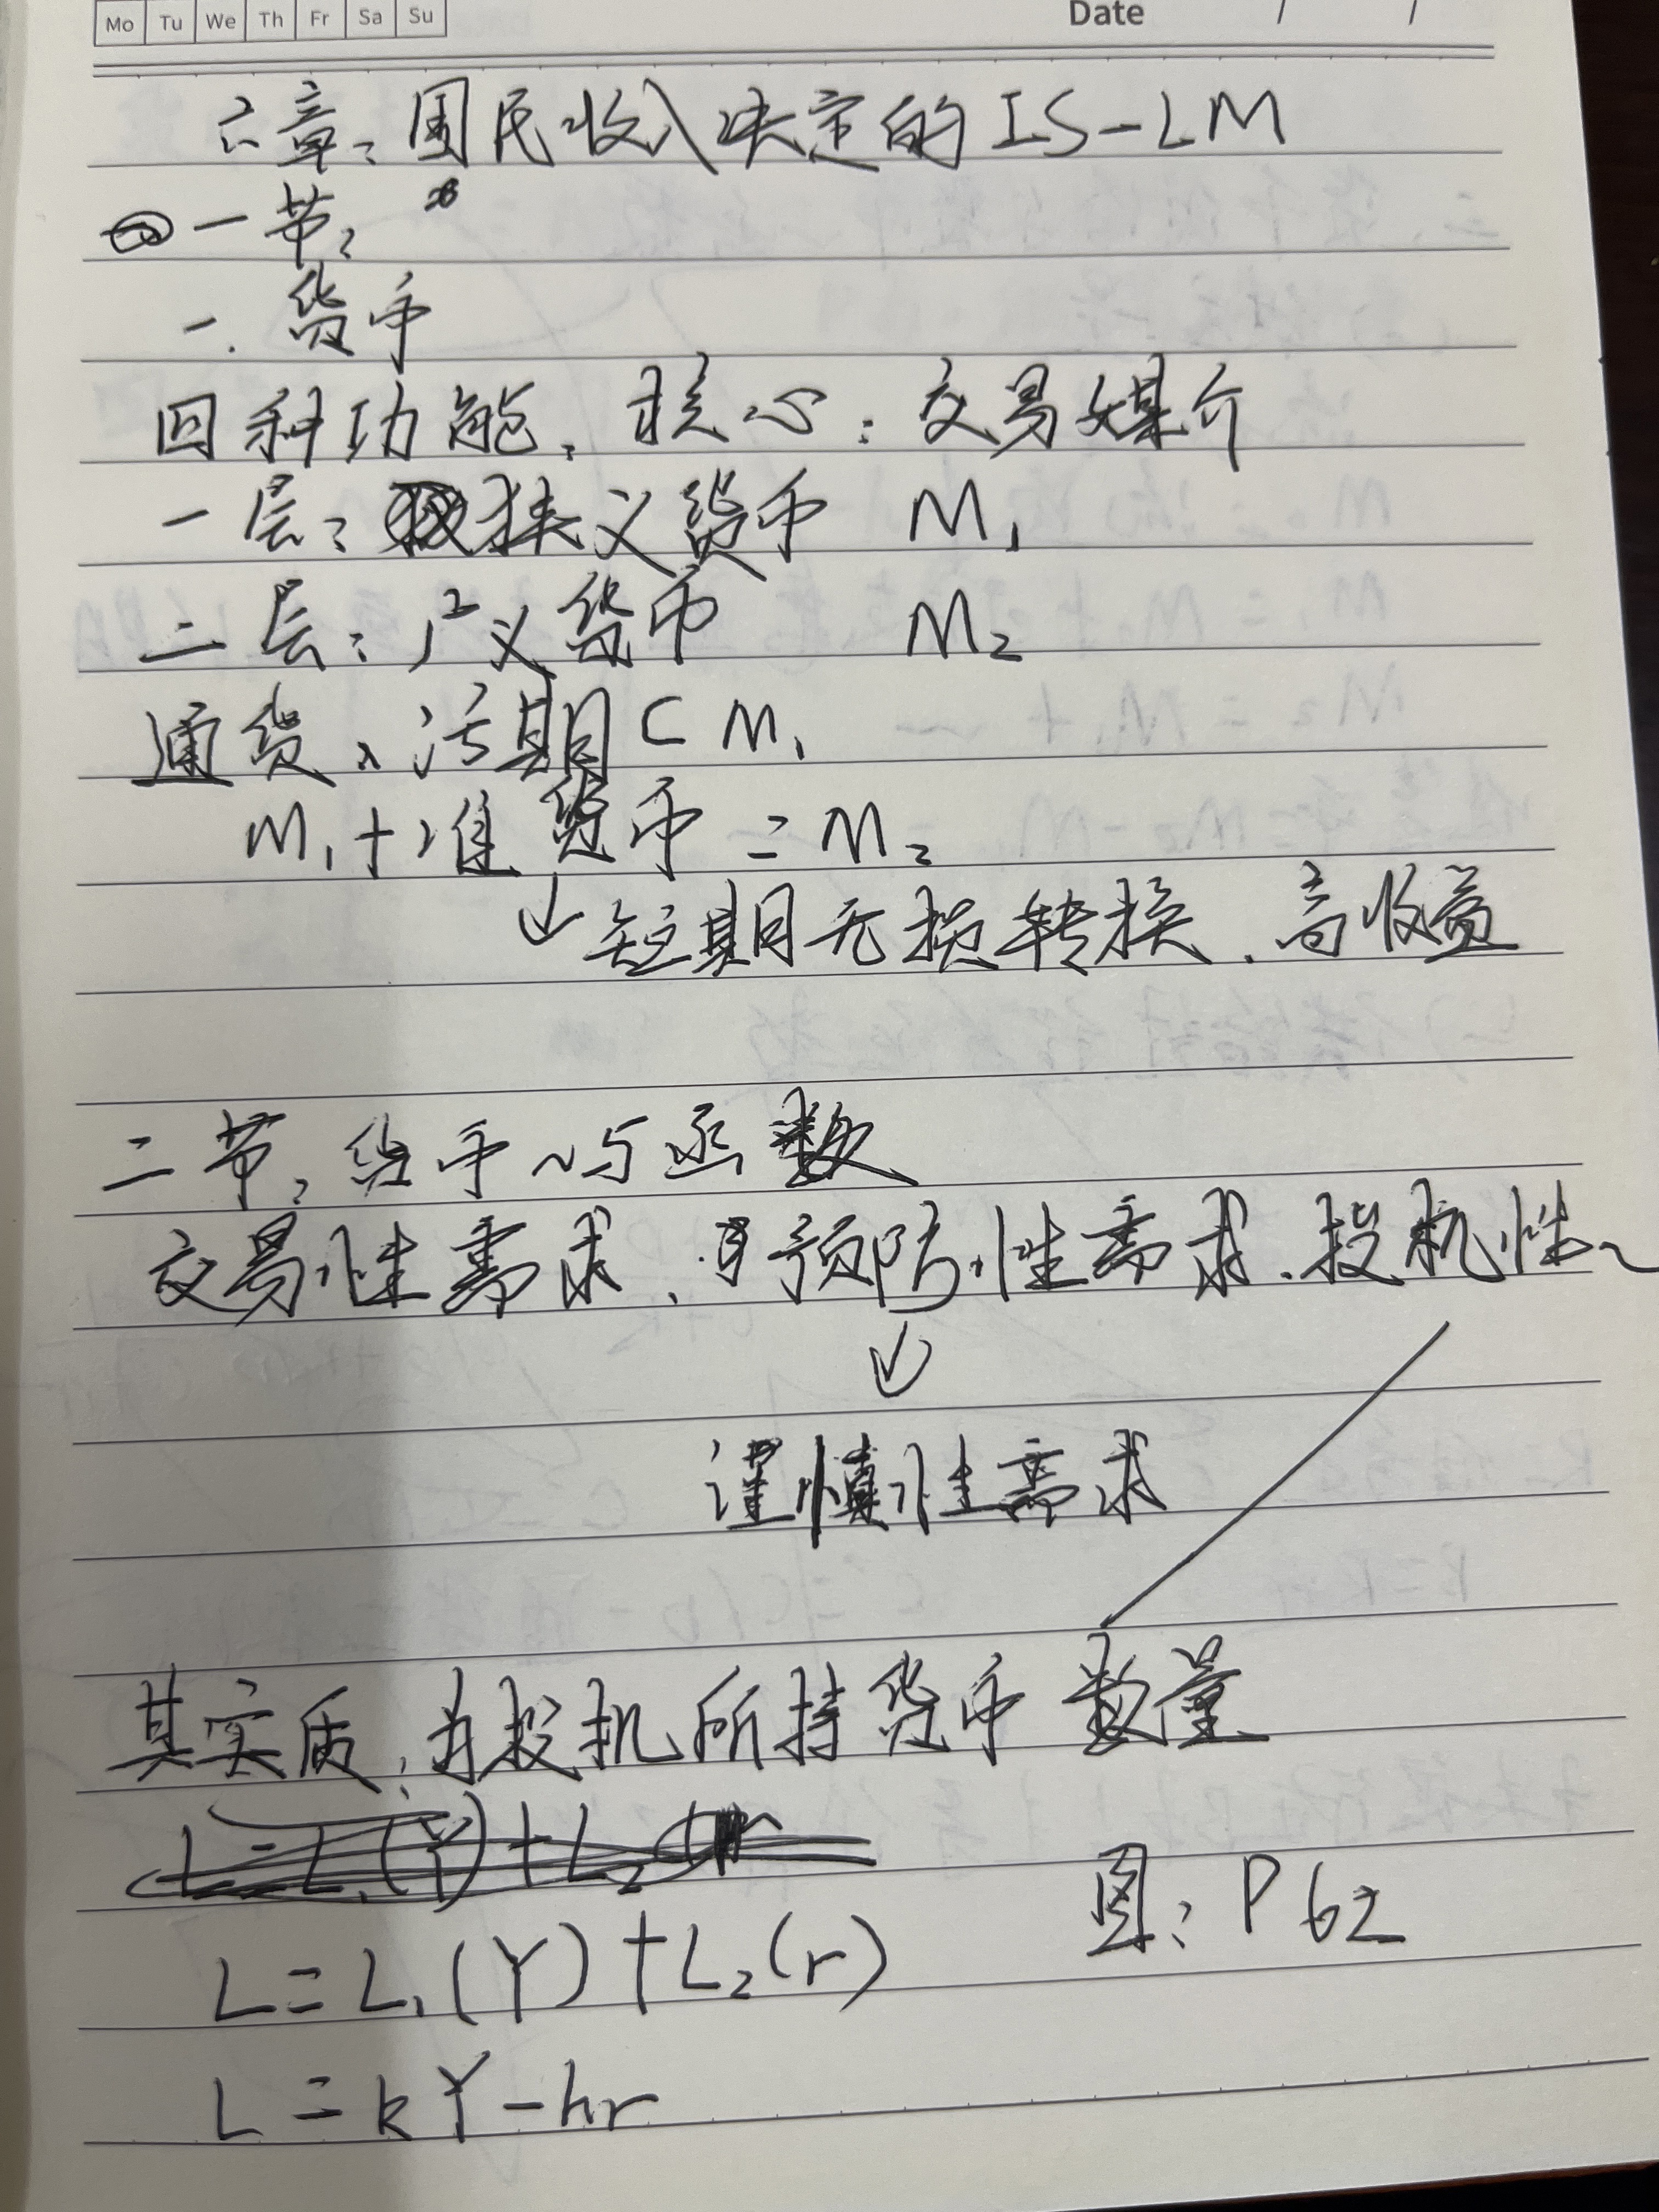 Mo Tu We Th Fr Sa Su Date / /
六章：国民收入决定的IS-LM
一节：
一.货币
四种功能，核心：交易媒介
一层：狭义货币 M₁
二层：广义货币 M₂
通货、活期 ⊂ M₁
M₁+准货币=M₂
↓短期无损转换、高收益
二节：货币~与函数
交易性需求、预防性需求、投机性~
↓
谨慎性需求
其实质：为投机所持货币数量
L=L₁(Y)+L₂(r) 图：P62
L=kY-hr